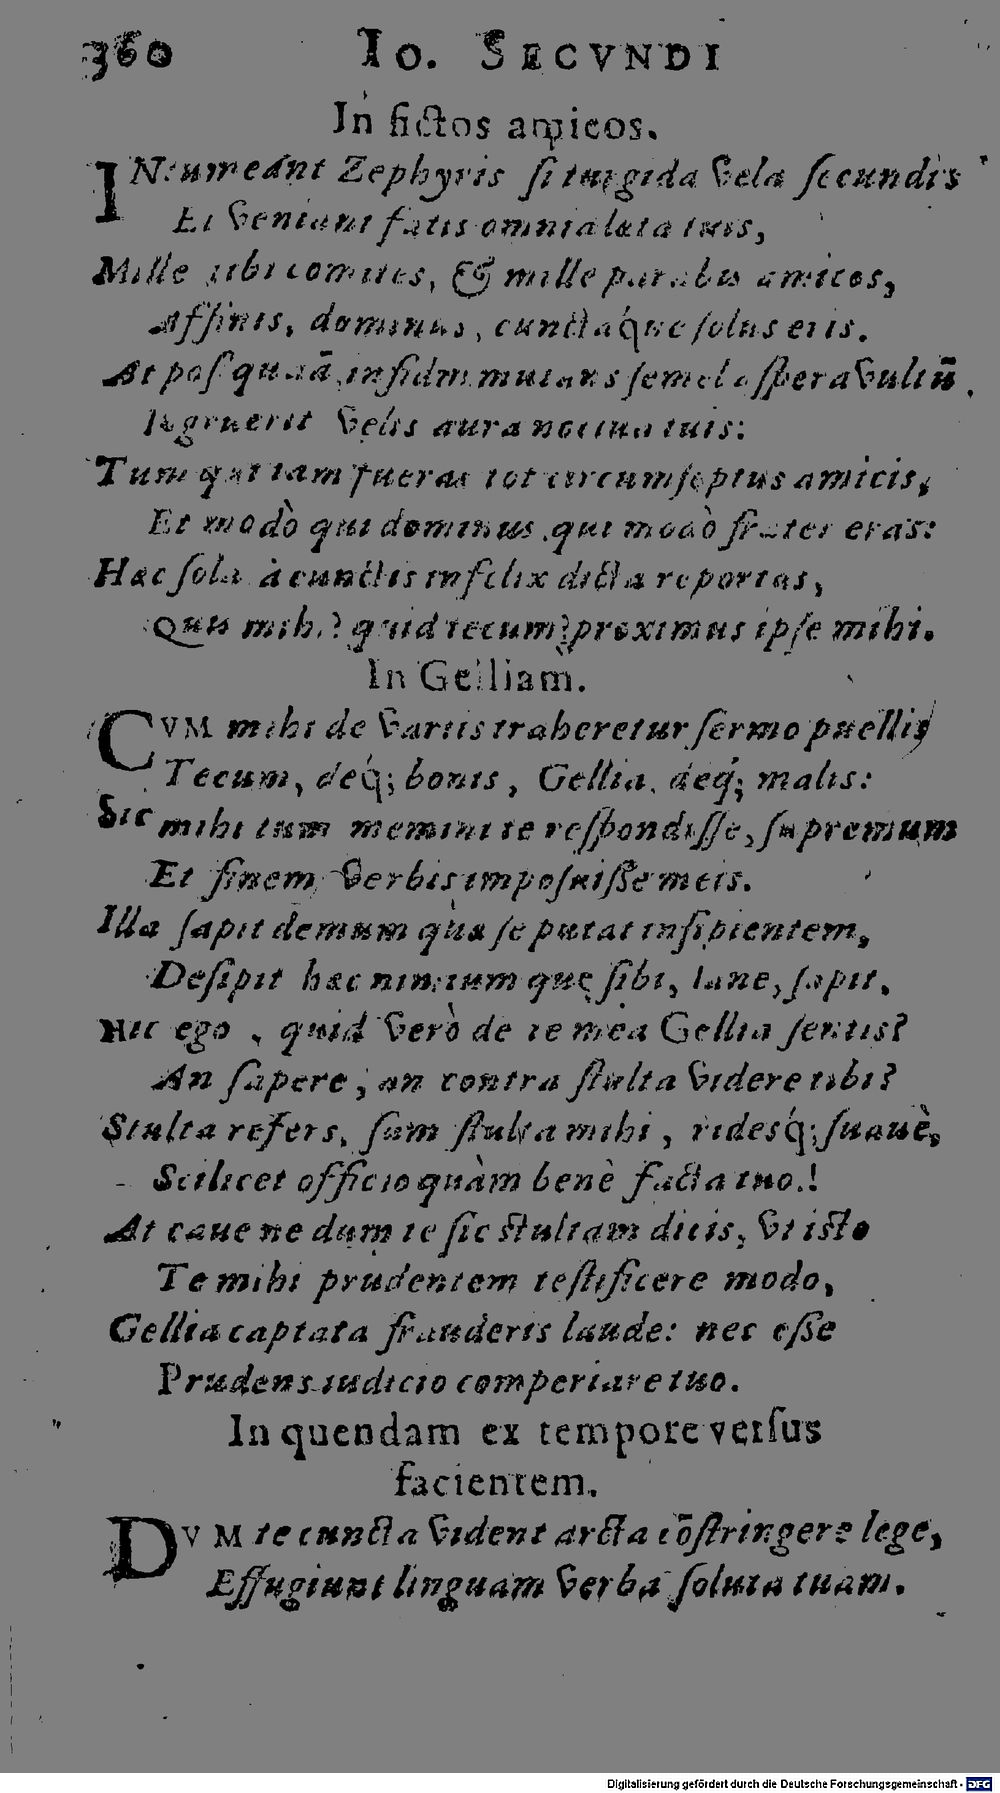 360 IO. SECVNDI
In fictos amicos.
INtumeant Zephyris si turgida vela secundis
Et veniant fatis omnia læta tuis,
Mille tibi comites, & mille parabis amicos,
Affinis, dominus, cunctaq́ue solus eris.
At posquā infidum mutans semel aspera vultū
Ingruerit velis aura notiua tuis:
Tum qui iam fueras tot circumseptus amicis,
Et modò qui dominus, qui modò frater eras:
Hæc sola à cunctis infelix dicta reportas,
Quis mihi? quid tecum? proximus ipse mihi.
In Gelliam.
CVM mihi de variis traheretur sermo puellis
Tecum, deq́; bonis, Gellia, deq́; malis:
Sic mihi tum memini te respondisse, supremum
Et finem verbis imposuisse meis.
Illa sapit demum quæ se putat insipientem,
Desipit hæc nimium quę sibi, Iane, sapit.
Hic ego, quid verò de te mea Gellia sentis?
An sapere, an contra stulta videre tibi?
Stulta refers, sum stulta mihi, ridesq́; suauè,
Scilicet officio quàm benè facta tuo.!
At caue ne dum te sic stultam dicis, vt isto
Te mihi prudentem testificere modo,
Gellia captata frauderis laude: nec esse
Prudens iudicio comperiare tuo.
In quendam ex tempore versus
facientem.
DVM te cuncta vident arcta cōstringere lege,
Effugiunt linguam verba soluta tuam.
Digitalisierung gefördert durch die Deutsche Forschungsgemeinschaft - DFG